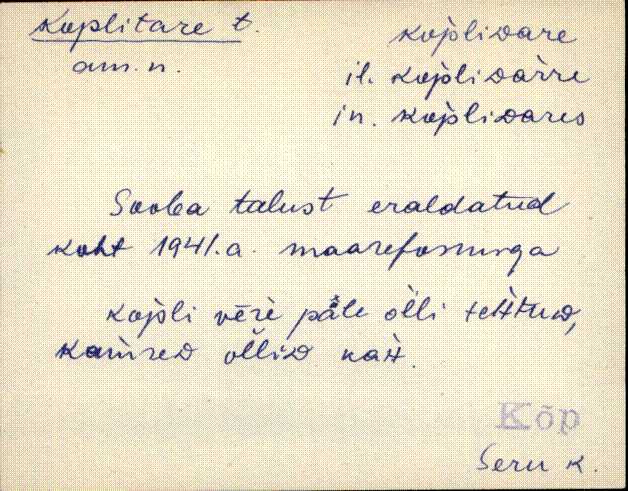 Koplitare t.
am. n.
kop̀liᴅare
il. kop̀liᴅàrre
in. kop̀liᴅares
Sooba talust eraldatud
koht 1941.a. maareformiga
kop̀li vēre pǟle
kamred
Kõp
Seru k.